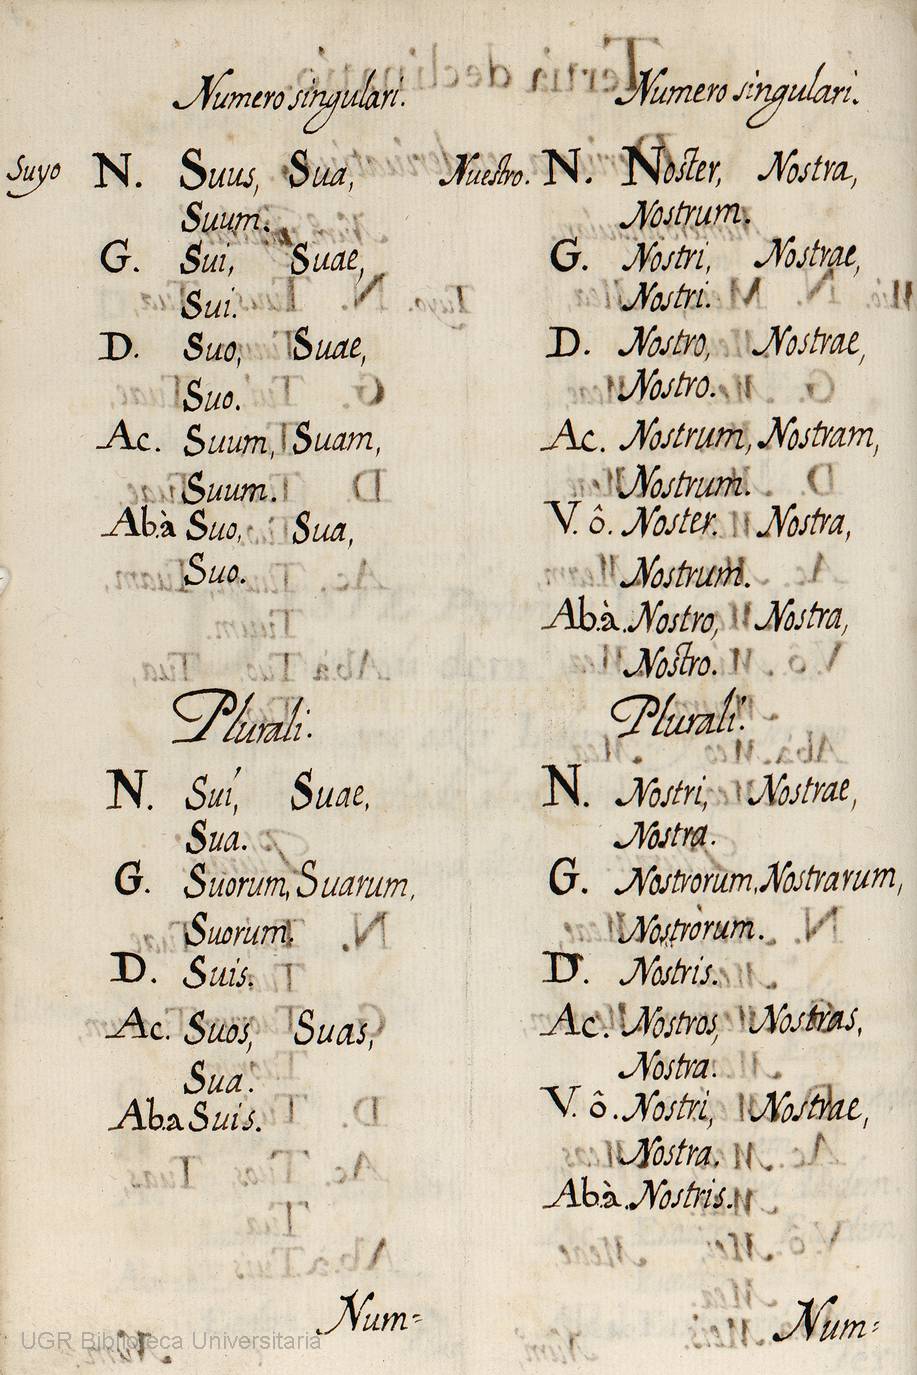 Numero singulari.
Suyo N. Suus, Sua,
Suum.
G. Sui, Suae,
Sui.
D. Suo, Suae,
Suo.
Ac. Suum, Suam,
Suum.
Ab.à Suo, Sua,
Suo.
Plurali.
N. Suí, Suae,
Sua.
G. Suorum, Suarum,
Suorum.
D. Suis.
Ac. Suos, Suas,
Sua.
Ab.a Suis.
Num=
Numero singulari.
Nuestro. N. Noster, Nostra,
Nostrum.
G. Nostri, Nostrae,
Nostri.
D. Nostro, Nostrae,
Nostro.
Ac. Nostrum, Nostram,
Nostrum.
V. ô. Noster. Nostra,
Nostrum.
Ab.à. Nostro, Nostra,
Nostro.
Plurali.
N. Nostri, Nostrae,
Nostra.
G. Nostrorum, Nostrarum,
Nostrorum.
D. Nostris.
Ac. Nostros, Nostras,
Nostra.
V. ô. Nostri, Nostrae,
Nostra.
Ab.à. Nostris.
Num=
UGR Biblioteca Universitaria